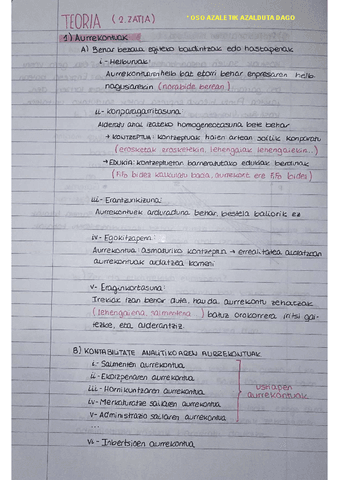 TEORIA (2. ZATIA)
* OSO AZALETIK AZALDUTA DAGO
1) Aurrekontuak
A) Behar bezala egiteko baldintzak edo hastapenak
i - Helburuak:
Aurrekontuaren helb bat etorri behar enpresaren helb
nagusiarekin (norabide berean)
ii - Konparagarritasuna:
Alderatu ahal izateko homogeneotasuna bete behar
→ KONTZEPTUA: kontzeptuak haien artean soilik konparatu
(erosketak erosketekin, lehengaiak lehengaiekin...)
→ Edukia: kontzeptuetan barneratutako edukiak berdinak
(FiFo bidez kalkulatu bada, aurrekont. ere FiFo bidez)
iii - Erantzunkizuna:
Aurrekontuek arduraduna behar, bestela baliorik ez
iv - Egokitzapena:
Aurrekontua: asmaturiko kontzeptua → errealitatea aldatzean
aurrekontuak aldatzea komeni
v - Eraginkortasuna:
Irekiak izan behar dute, hau da, aurrekontu zehatzetatik
(lehengaiena, salmentena) batuz orokorrera iritsi gai-
tezke, eta alderantziz.
B) KONTABILITATE ANALITIKOAREN AURREKONTUAK
i - Salmenten aurrekontua
ii - Ekoizpenaren aurrekontua
iii - Hornikuntzaren aurrekontua
iv - Merkaturatze sailaren aurrekontua
v - Administrazio sailaren aurrekontua
...
ustiapen
aurrekontuak
vi - Inbertsioen aurrekontua